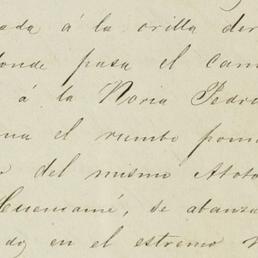 ada á la orilla der
onde pasa el cam
á la Noria Pedr
na el rumbo pom
del mismo Atoto
Cuencamé, se abanza
do en el estremo